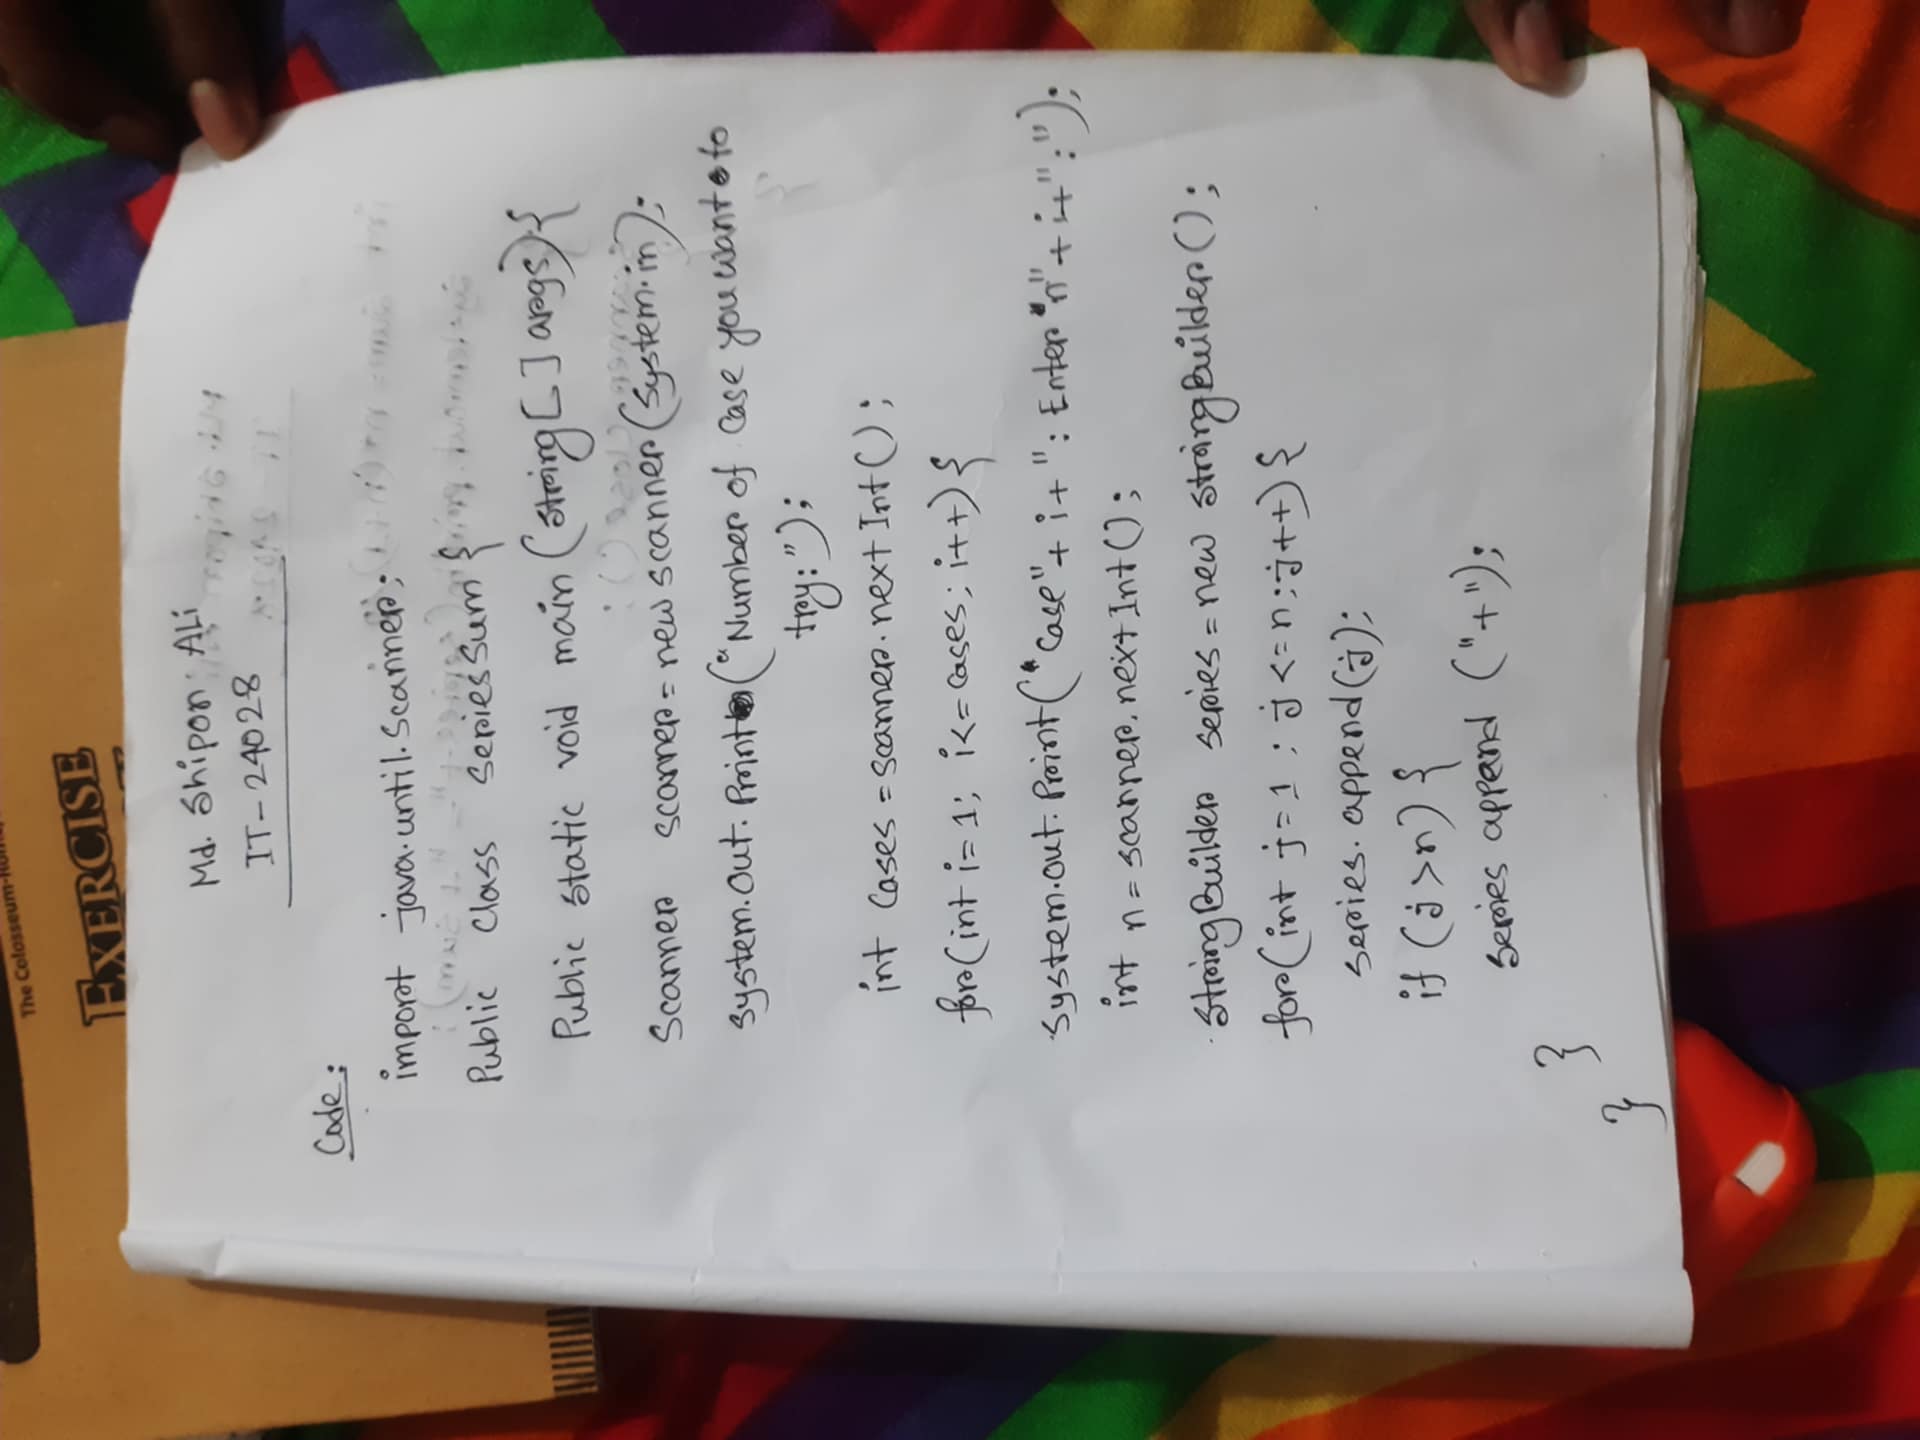 The Colosseum-Rome
EXERCISE
Md. Shipon Ali
IT-24028
Code:
import java.until.Scanner;
Public Class SeriesSum {
Public Static void main (String[] args) {
Scanner scanner = new scanner (System.in);
System.out.Print ("Number of Case you want to
try:");
int Cases = scanner.next Int ();
for (int i = 1; i <= cases; i++) {
System.out.Print ("Case" + i + ": Enter "n" + i + ":");
int n = scanner.next Int ();
StringBuilder series = new StringBuilder ();
for (int j = 1; j <= n; j++) {
series.append (j);
if (j > n) {
series append ("+");
}
}